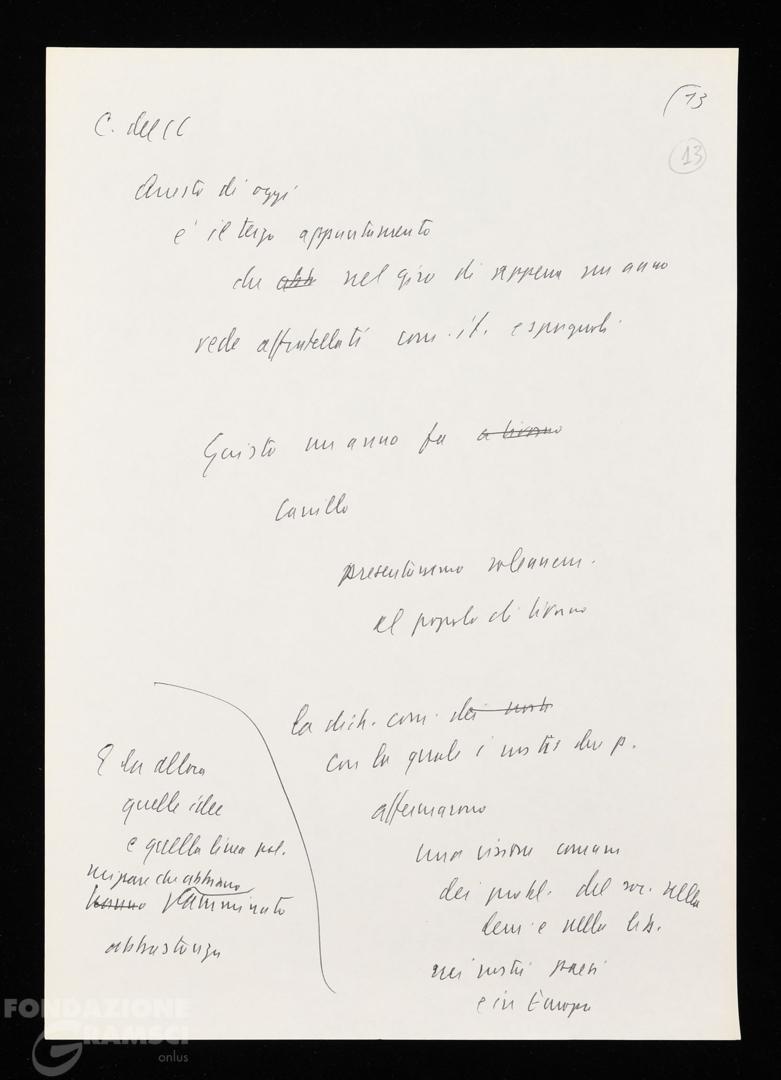 (13
13
C. del CC
Questo di oggi
e' il terzo appuntamento
che abb nel giro di neppena un anno
vede affratellati com. it. e spagnoli
Giusto un anno fa a Livorno
Carrillo
presentammo solennem.
al popolo di Livorno
la dich. com. dei nostri
con la quale i nostri due p.
affermarono
una visione comune
dei probl. del soc. nella
dem. e nella lib.
nei nostri paesi
e in Europa
E da allora
quelle idee
e quella linea pol.
mi pare che abbiano
hanno camminato
abbastanza
FONDAZIONE
GRAMSCI
onlus